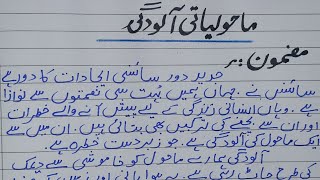 ماحولیاتی آلودگی
مضمون:
جدید دور سائنسی ایجادات کا دور ہے
سائنس نے جہاں ہمیں بہت سی نعمتوں سے نوازا
ہے۔ وہاں انسانی زندگی کے لیے پیش آنے والے خطرات
اور ان سے بچنے کی ترکیبیں بھی بتائی ہیں۔ ان میں سے
ایک ماحول کی آلودگی ہے۔ جو زبردست خطرہ ہے۔
آلودگی ہمارے ماحول کو خاموشی سے دیمک
کی طرح چاٹ رہی ہے۔ یہ ہوا پانی اور زمین کو